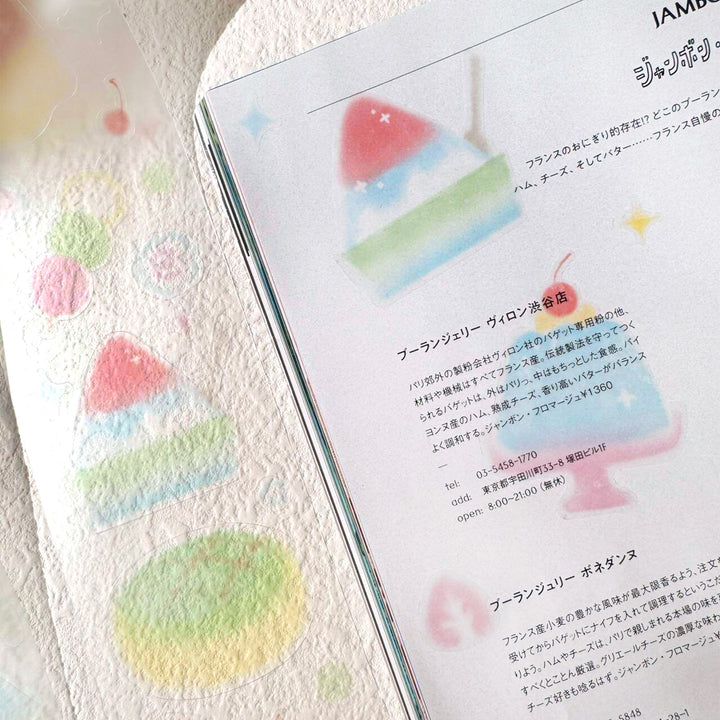 JAMBO
ジャンボン・
フランスのおにぎり的存在!? どこのブーラン
ハム、チーズ、そしてバター……フランス自慢の
ブーランジェリー ヴィロン渋谷店
パリ郊外の製粉会社ヴィロン社のバゲット専用粉の他、
材料や機械はすべてフランス産。伝統製法を守ってつく
られるバゲットは、外はパリっ、中はもちっとした食感。バイ
ヨンヌ産のハム、熟成チーズ、香り高いバターがバランス
よく調和する。ジャンボン・フロマージュ¥1360
—
tel: 03-5458-1770
add: 東京都宇田川町33-8 塚田ビル1F
open: 8:00~21:00 (無休)
ブーランジュリー ボネダンヌ
フランス産小麦の豊かな風味が最大限香るよう、注文を
受けてからバゲットにナイフを入れて調理するというこだ
りよう。ハムやチーズは、パリで親しまれる本場の味を
すべくとことん厳選。グリエールチーズの濃厚な味わ
チーズ好きも唸るはず。ジャンボン・フロマージュ¥
5848
-28-1